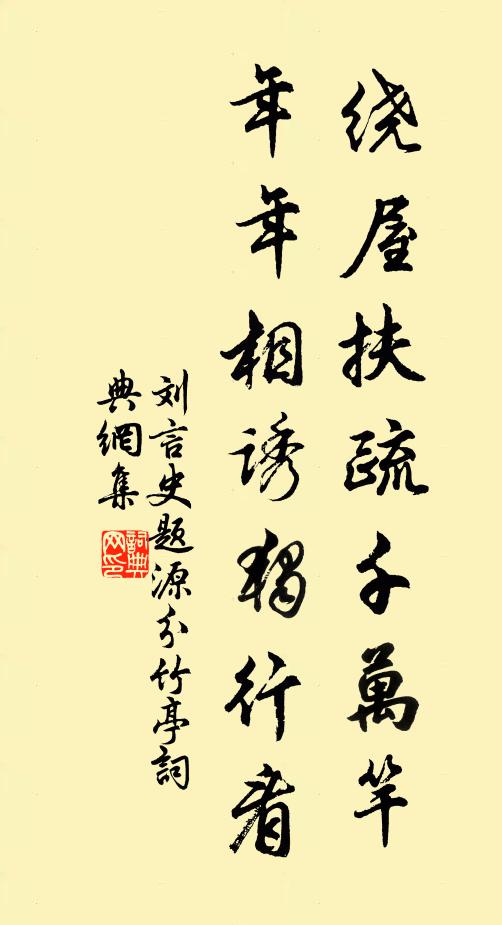 绕屋扶疏千萬竿
年年相诱独行看
刘言史题源分竹亭詞
典網集
詞典网印